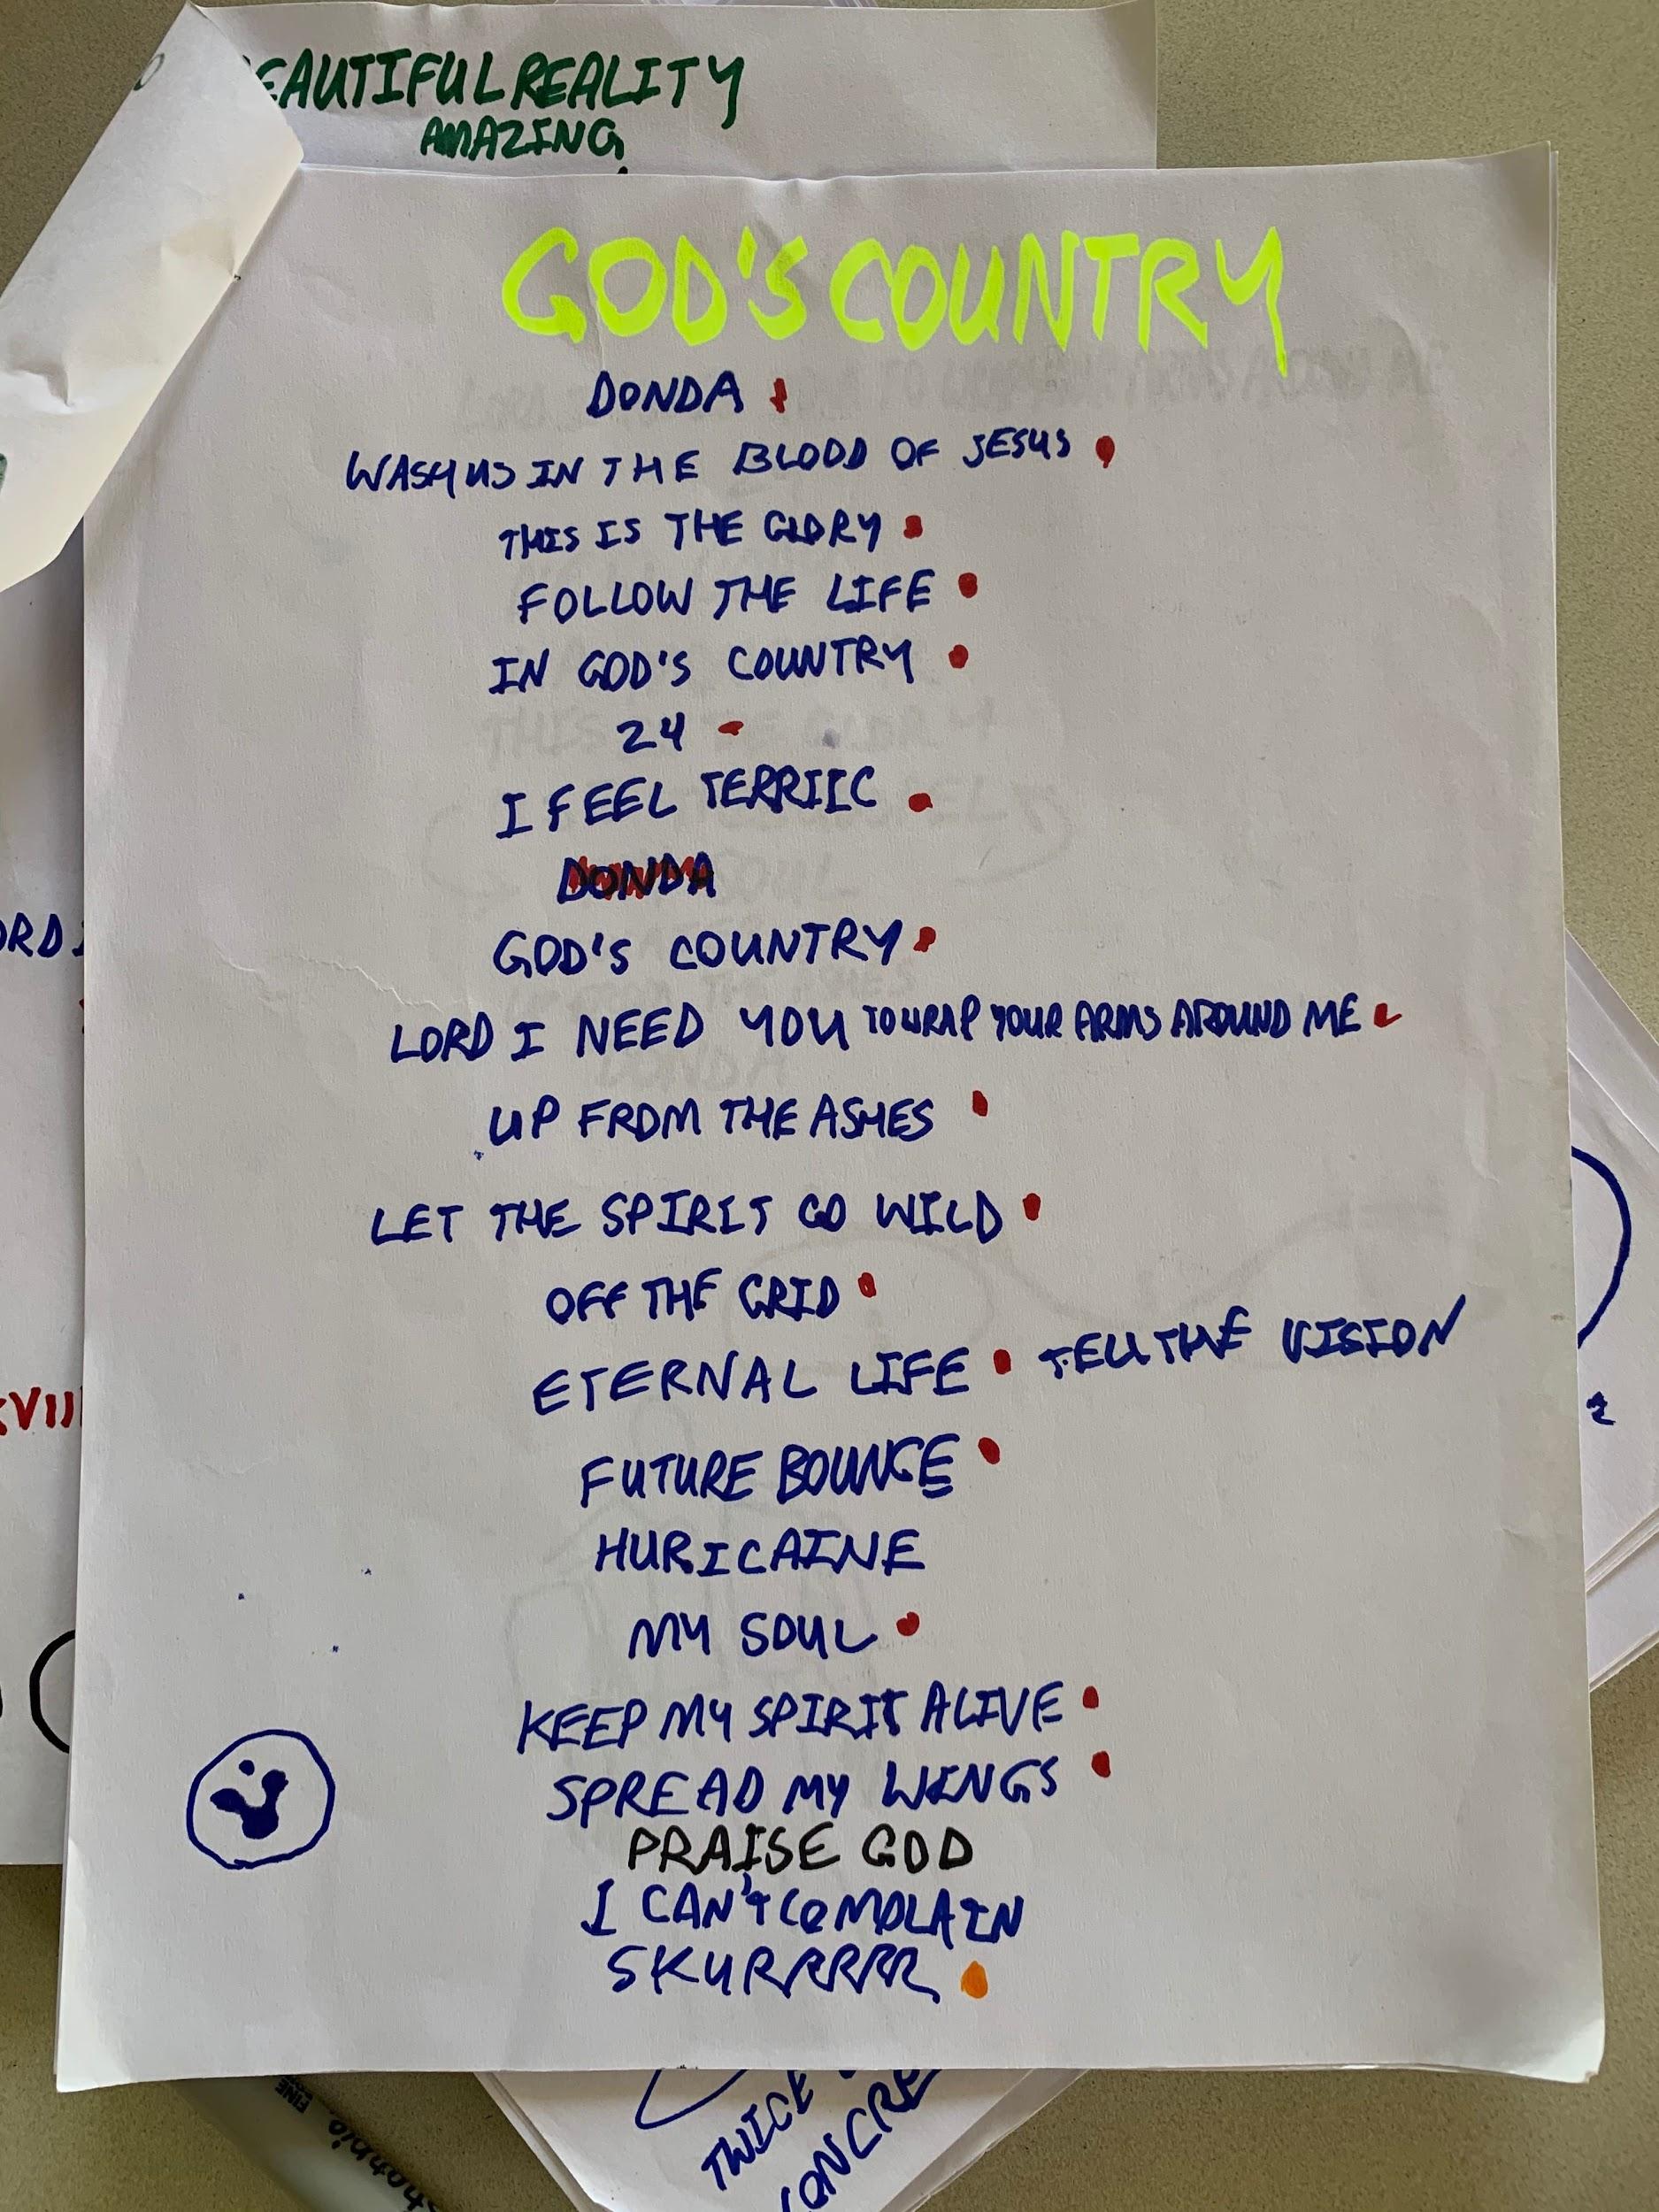 EAUTIFUL REALITY
AMAZING
GOD'S COUNTRY
DONDA
WASH US IN THE BLOOD OF JESUS
THIS IS THE GLORY
FOLLOW THE LIFE
IN GOD'S COUNTRY
24
I FEEL TERRIIC
DONDA
GOD'S COUNTRY
LORD I NEED YOU TO WRAP YOUR ARMS AROUND ME
UP FROM THE ASHES
LET THE SPIRIT GO WILD
OFF THE GRID
ETERNAL LIFE TELL THE VISION
FUTURE BOUNCE
HURICAINE
MY SOUL
KEEP MY SPIRIT ALIVE
SPREAD MY WINGS
PRAISE GOD
I CAN'T COMPLAIN
SKURRRRR
ORD I
XVII
2
TWICE
CONCRE
FINE
Sharpie